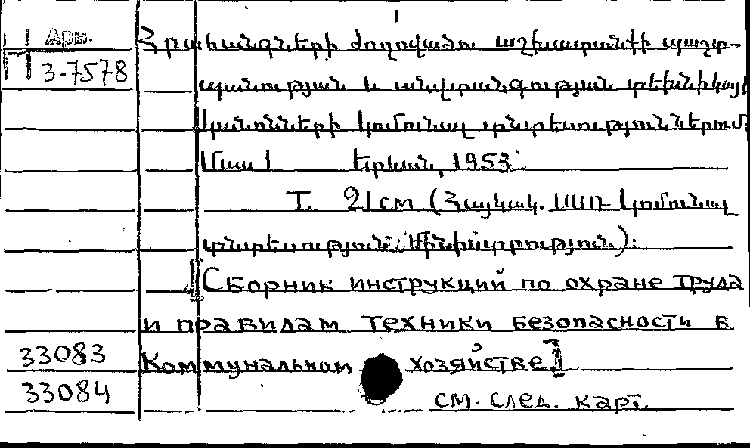 Арм.
П
3-7578
Հրահանգների ժողովածու աշխատանքի պաշտ-
պանության և անվտանգության տեխնիկայի
կանոնների կոմունալ տնտեսություններում:
Մաս 1 Երևան, 1953
T. 21 см (Հայկակ. ՍՍՌ կոմունալ
տնտեսության մինիստրություն):
[Сборник инструкций по охране труда
и правилам техники безопасности в
33083 Коммунальном хозяйстве]
33084 см. след. карт.